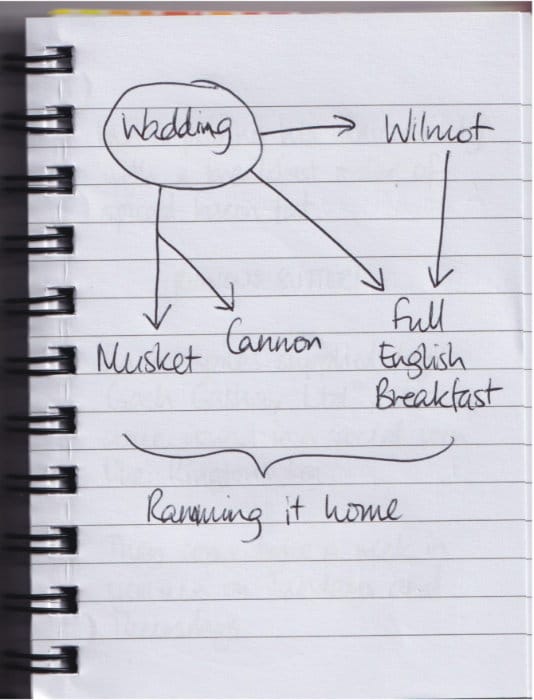 Wadding
Wilmot
Musket
Cannon
Full
English
Breakfast
Ramming it home